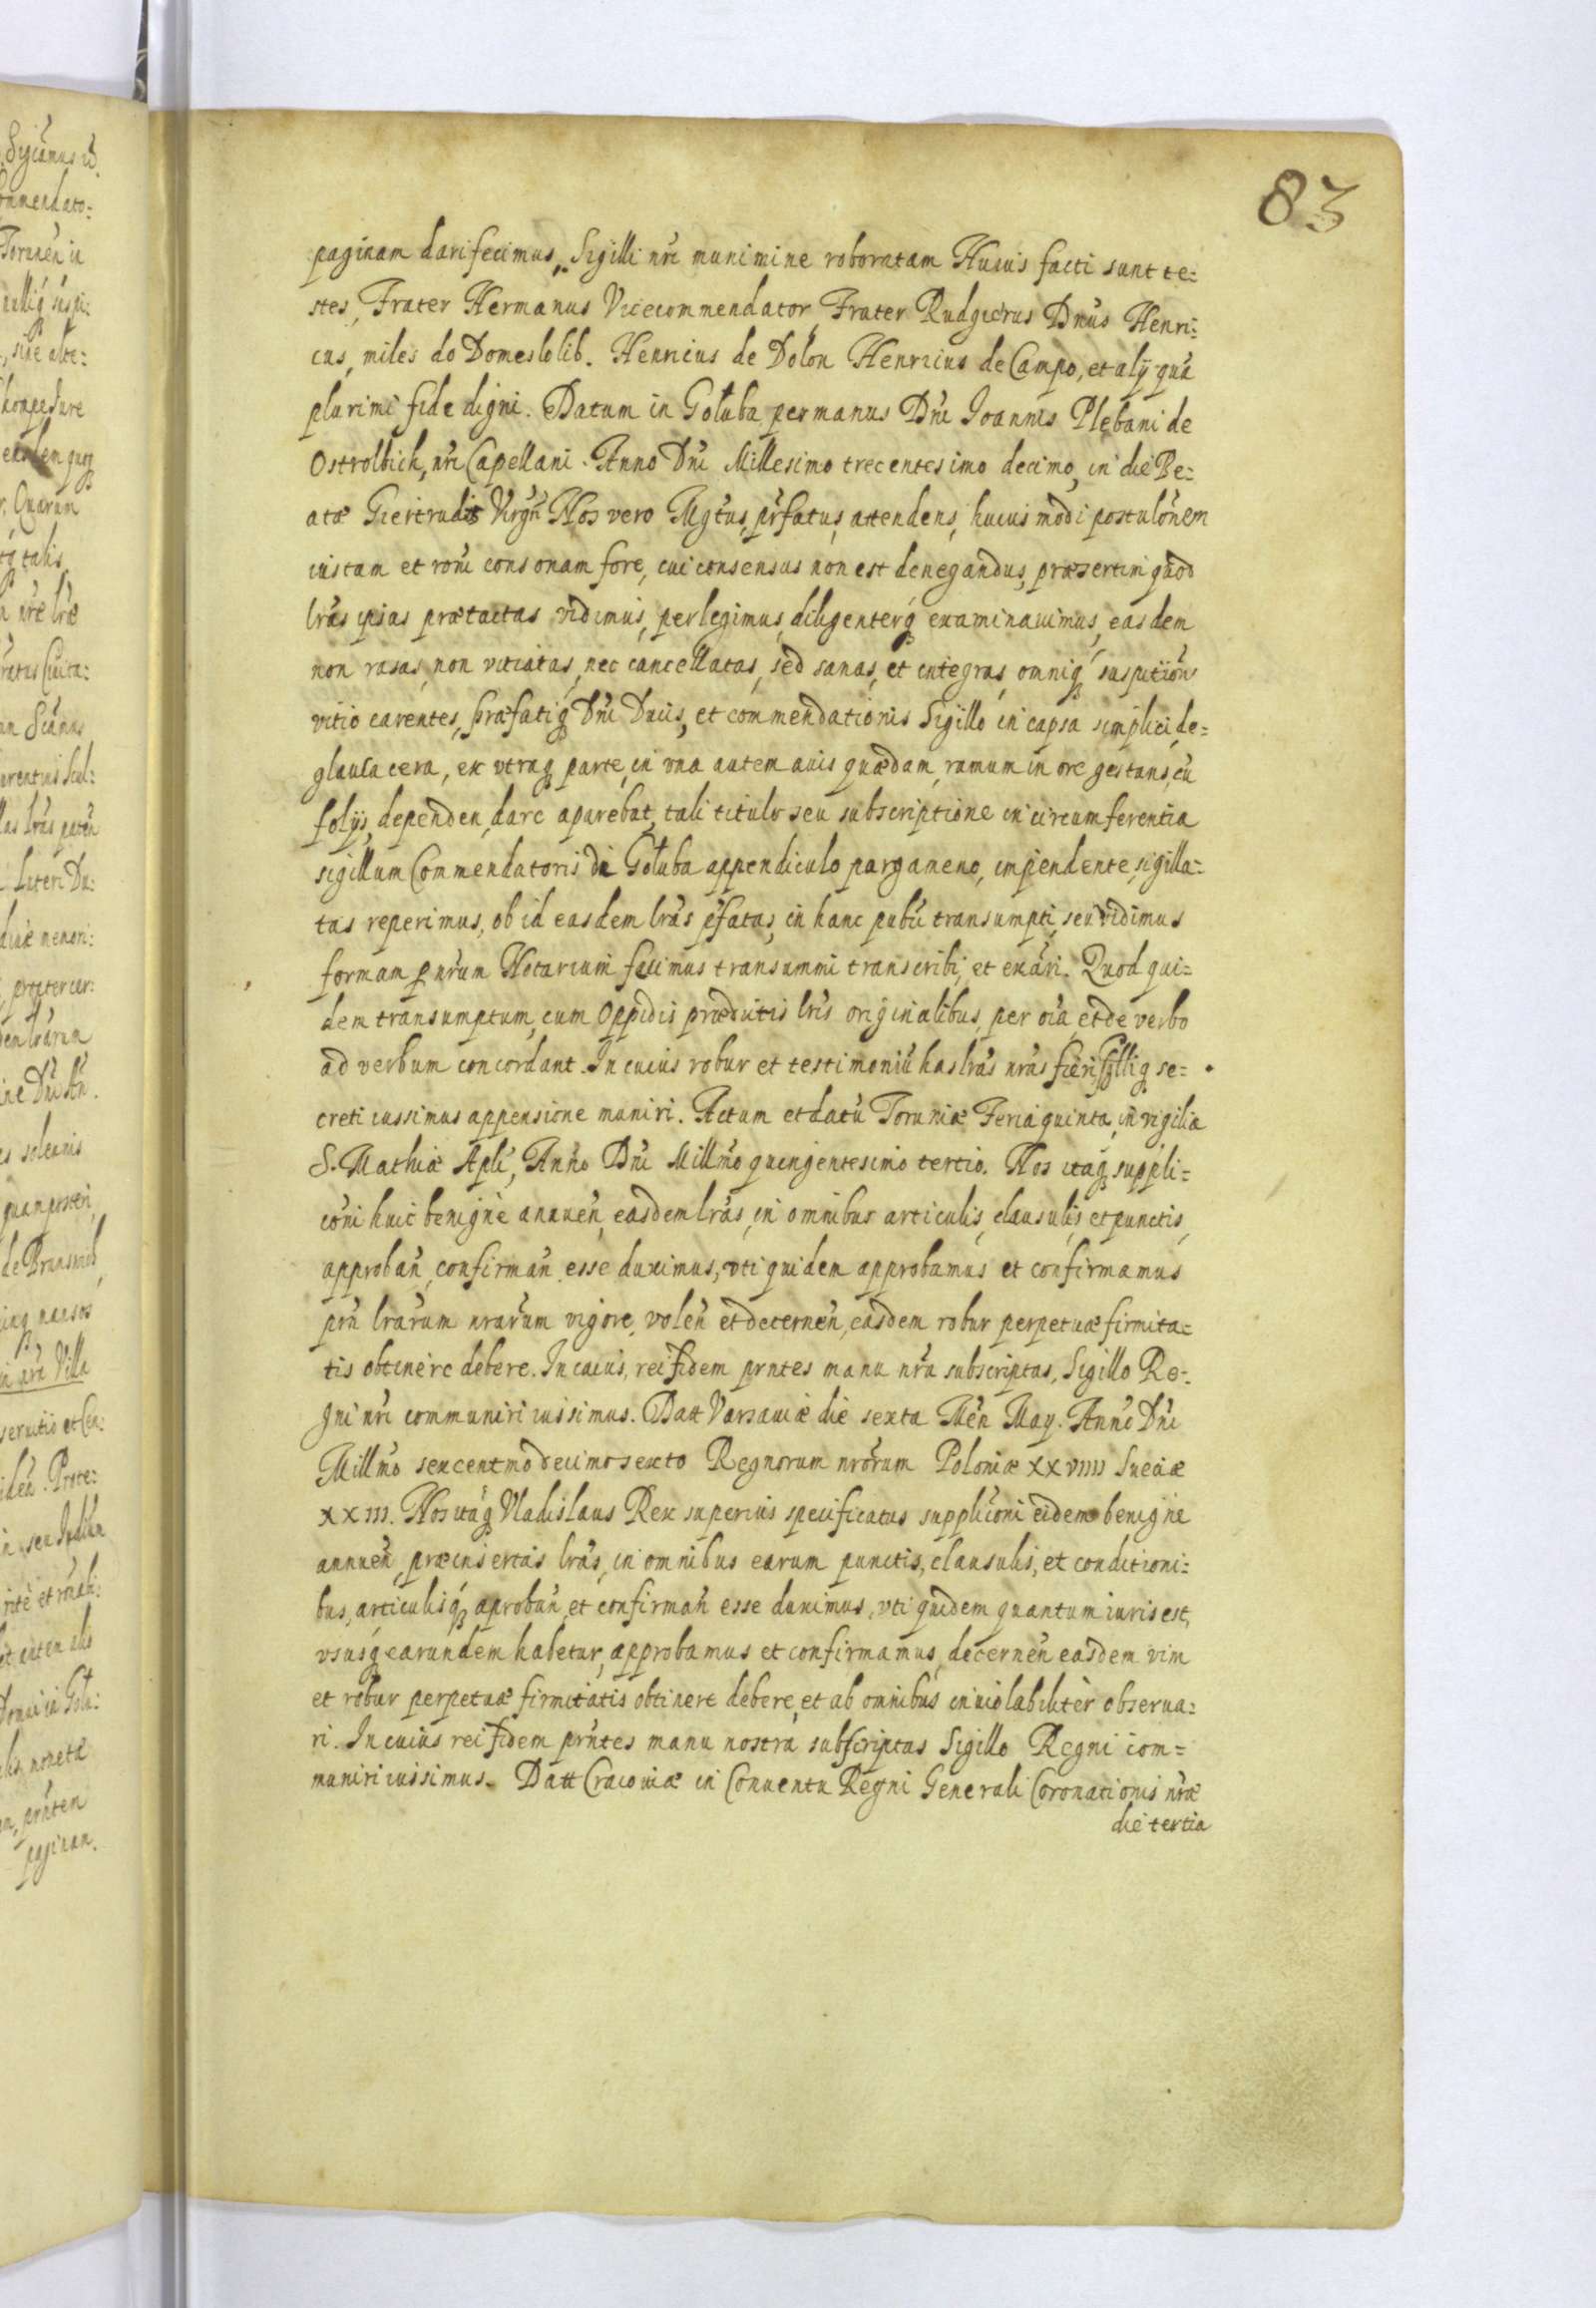 83
paginam dari fecimus, Sigilli nri munimine roboratam Huius facti sunt te=
stes, Frater Hermanus Vicecommendator Frater Rudgierus Dnus Henri=
cus, miles do Domeslolib. Henricus de Dolon Henricus de Campo, et alÿ quã
plurimi fide digni. Datum in Goluba per manus Dni Joannis Plebani de
Ostrolbich, nri Capellani. Anno Dni Millesimo trecentesimo decimo, in die Be=
atæ Giertrudis Virgñ Nos vero Mgtus, prfatus, attendens, huius modi postulonem
iustam et roni consonam fore, cui consensus non est denegandus, præsertim quod
lras ipsas prætactas vidimus, perlegimus, diligenterq examinauimus, easdem
non rasas, non vitiatas, nec cancellatas, sed sanas, et integras, omniq suspition
vitio carentes, præfatiq Dni Ducis, et commendationis Sigillo in capsa simplici, de=
glauca cera, ex vtraq parte, in vna autem auis quædam, ramum in ore gestans, cu
folÿs, dependen, dare aparebat, tali titulo seu subscriptione in circumferentia
sigillum Commendatoris di Goluba appendiculo pargameno, impendente, sigilla=
tas reperimus, ob id easdem lras pfatas, in hanc publi transumpti, seu vidimus
formam p nrum Notarium fecimus transummi transcribi, et exari. Quod qui=
dem transumptum, cum Oppidis prædictis lris originalibus, per oia, et de verbo
ad verbum concordant. In cuius robur et testimoniu has lras nras fieri Sigilliq se=
creti iussimus appensione muniri. Actum et datu Toruniæ Feria quinta, in vigilia
S. Mathiæ Apli, Anno Dni Millmo quingentesimo tertio. Nos itaq suppli=
coni huic benignè annuen, easdem lras, in omnibus articulis, clausulis, et punctis,
approban, confirman esse duximus, vti quidem approbamus et confirmamus
prn lrarum nrarum vigore, volen et decernen, easdem robur perpetuæ firmita=
tis obtinere debere. In cuius, rei fidem prntes manu nra subscriptas, Sigillo Re=
gni nri communiri iussimus. Datt Varsauiæ die sexta Men May. Anno Dni
Millmo sexcentmo decimo sexto Regnorum nrorum Poloniæ xxviiii Sueciæ
xxiii. Nos itaq Vladislaus Rex superius specificatus supplicioni eidem benigne
annuen, præinsertas lras, in omnibus earum punctis, clausulis, et conditioni=
bus, articulisq aproban, et confirman esse duximus, vti quidem quantum iuris est,
vsusq earundem habetur, approbamus et confirmamus, decernen easdem vim
et robur perpetuæ firmitatis obtinere debere, et ab omnibus inuiolabilitèr obserua=
ri. In cuius rei fidem prntes manu nostra subscriptas Sigillo Regni com=
muniri iussimus. Datt Cracouiæ in Conuentu Regni Generali Coronationis nræ
die tertia